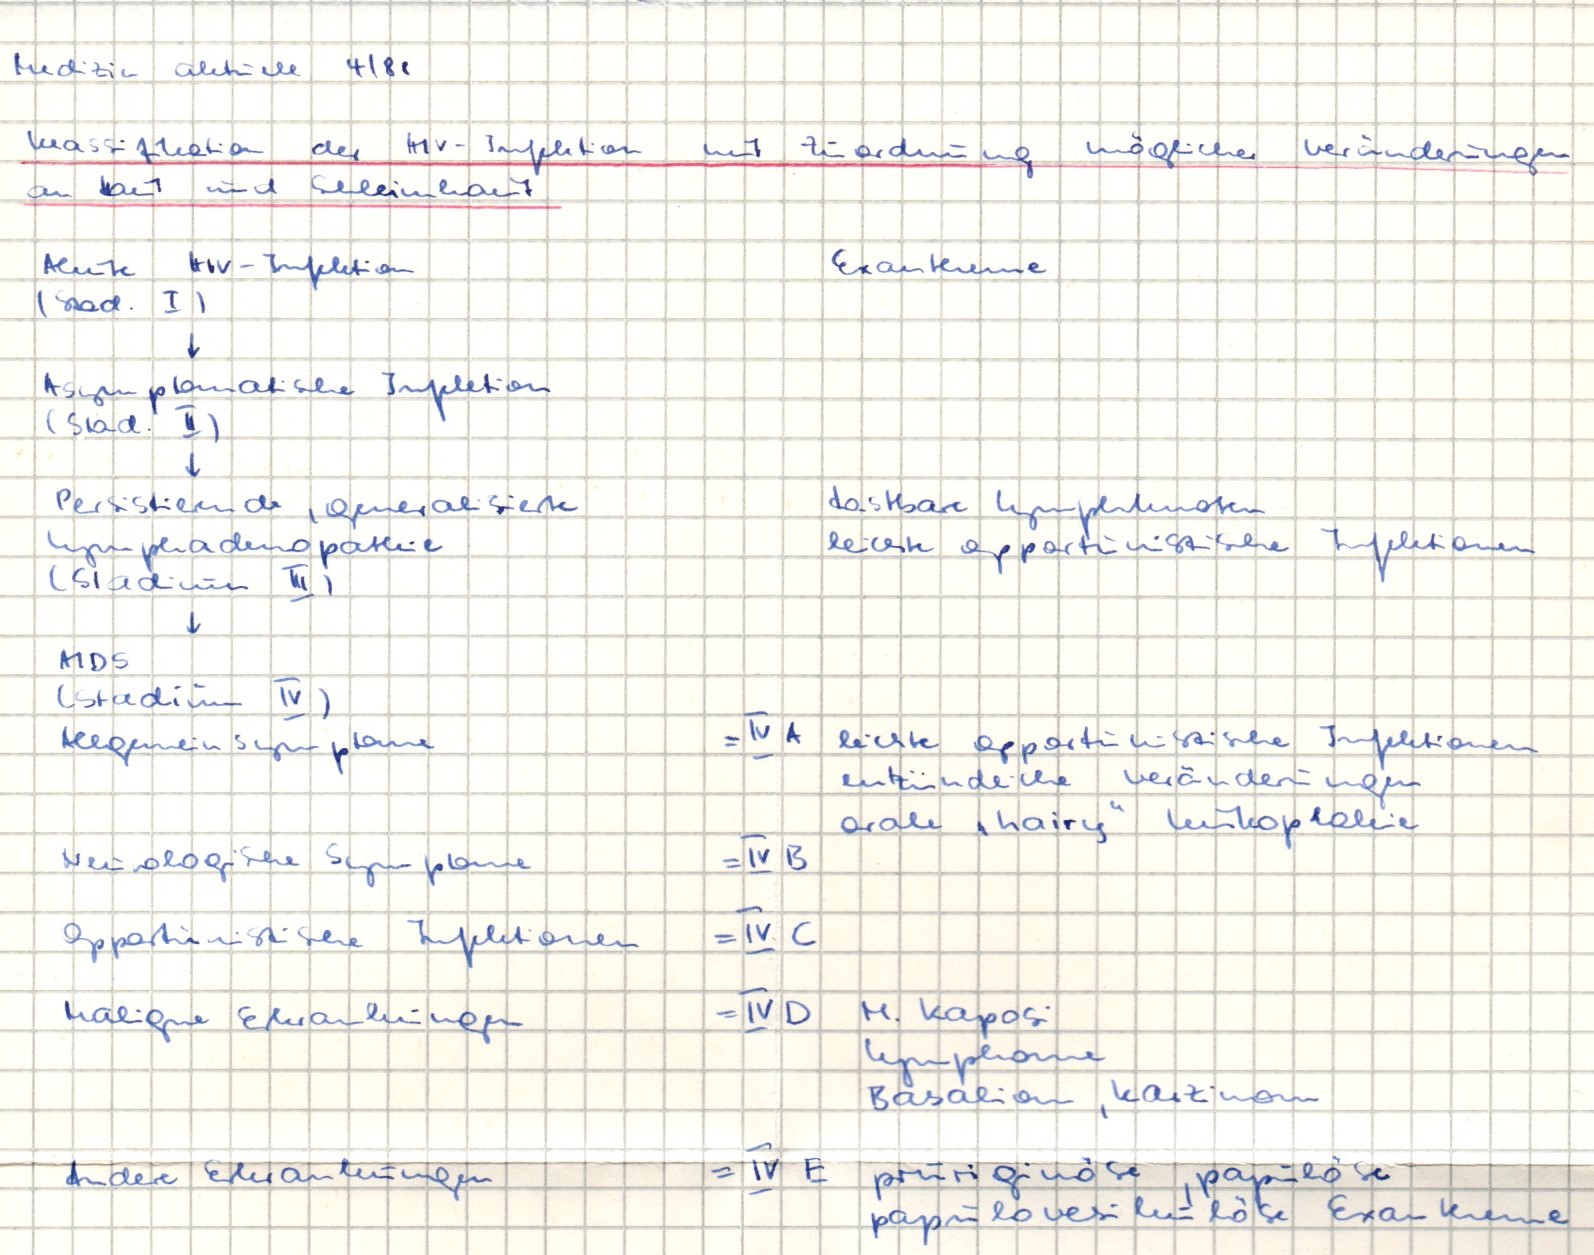 Medizin aktuell 4/88
Klassifikation der HIV-Infektion mit Zuordnung möglicher Veränderungen
an Haut und Schleimhaut
Akute HIV-Infektion Exantheme
(Stad. I)
↓
Asymptomatische Infektion
(Stad. II)
↓
Persistierende, generalisierte tastbare Lymphknoten
Lymphadenopathie leichte opportunistische Infektionen
(Stadium III)
↓
AIDS
(Stadium IV)
Allgemeinsymptome = IV A leichte opportunistische Infektionen
entzündliche Veränderungen
orale "hairy" Leukoplakie
Neurologische Symptome = IV B
Opportunistische Infektionen = IV C
Maligne Erkrankungen = IV D M. Kaposi
Lymphome
Basaliom, Karzinom
Andere Erkrankungen = IV E pruriginöse, papulöse
papulovesikulöse Exantheme